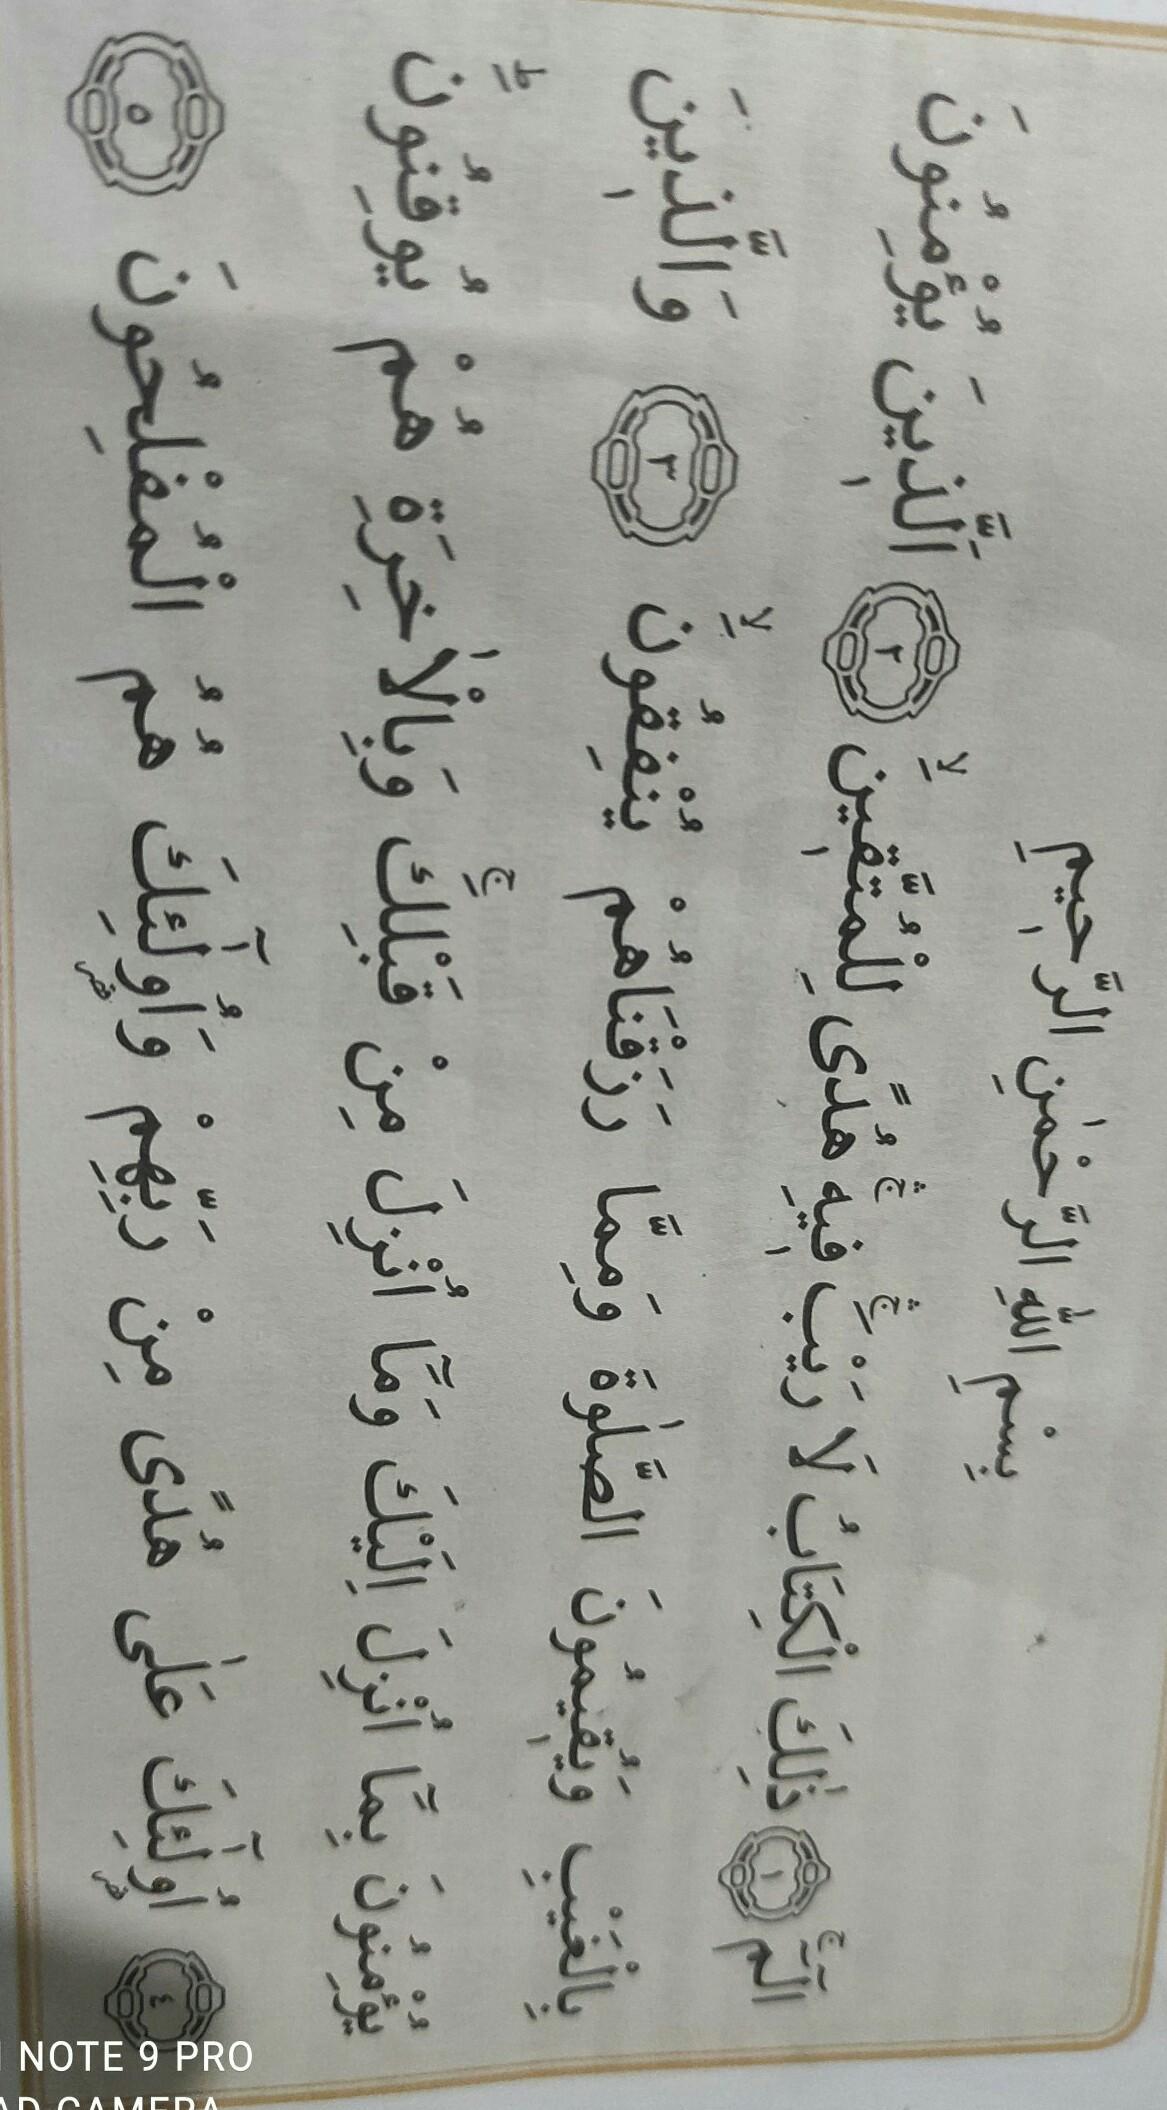 بِسْمِ اللّٰهِ الرَّحْمٰنِ الرَّحِيمِ
الٓمٓۚ ﴿١﴾ ذٰلِكَ الْكِتَابُ لَا رَيْبَۚۛ فِيهِۚۛ هُدًى لِلْمُتَّقِينَۙ ﴿٢﴾ اَلَّذِينَ يُؤْمِنُونَ
بِالْغَيْبِ وَيُقِيمُونَ الصَّلٰوةَ وَمِمَّا رَزَقْنَاهُمْ يُنْفِقُونَۙ ﴿٣﴾ وَالَّذِينَ
يُؤْمِنُونَ بِمَٓا اُنْزِلَ اِلَيْكَ وَمَٓا اُنْزِلَ مِنْ قَبْلِكَۚ وَبِالْاٰخِرَةِ هُمْ يُوقِنُونَۜ
﴿٤﴾ اُو۬لٰٓئِكَ عَلٰى هُدًى مِنْ رَبِّهِمْ وَاُو۬لٰٓئِكَ هُمُ الْمُفْلِحُونَ ﴿٥﴾
NOTE 9 PRO
AD CAMERA